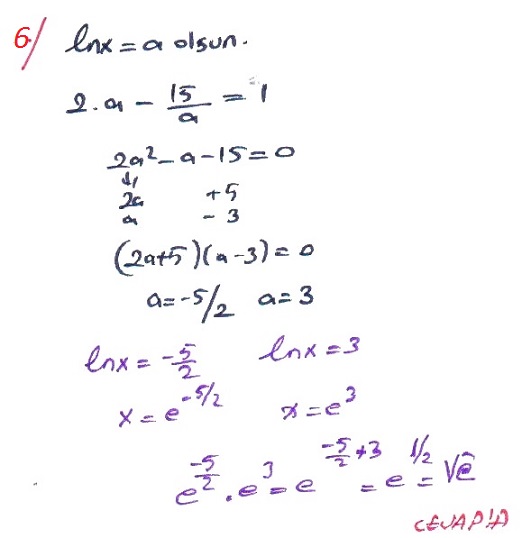 6/ lnx = a olsun.
2.a - 15/a = 1
2a² - a - 15 = 0
2a +5
a -3
(2a+5)(a-3) = 0
a = -5/2 a = 3
lnx = -5/2 lnx = 3
x = e^(-5/2) x = e³
e^(-5/2) . e³ = e^(-5/2+3) = e^(1/2) = √e
CEVAP:A